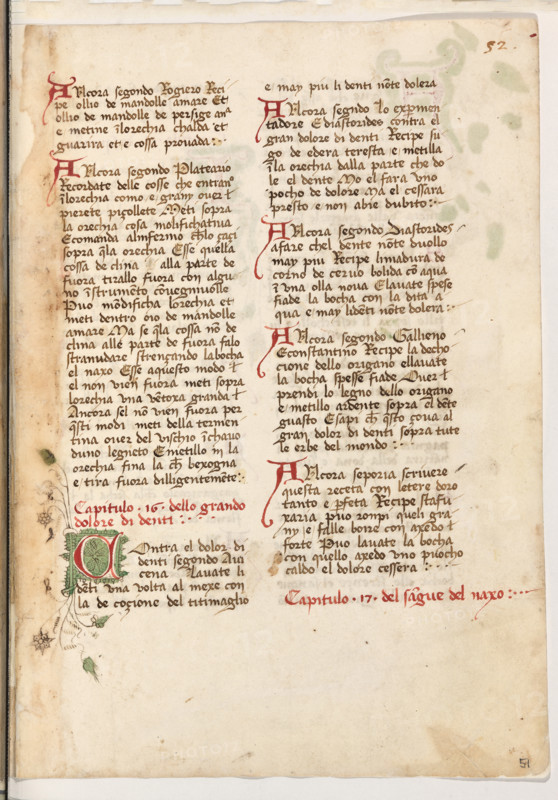 52.
Ancora segondo Rogiero Reci
pe ollio de mandolle amare Et
ollio de mandolle de persige anᵃ
e metine ĩlorechia chalda et
guarira et e cossa prouada:
Ancora segondo Plateario
Recordate delle cosse che entranᵒ
ĩlorechia como e grany ouer ł
pierete piçollete Meti sopra
la orechia cosa molifichatiua
Ecomanda alinfermo ch̃lo caçi
sopra q̃la orechia Esse quella
cossa de clina alla parte de
fuora tirallo fuora con algu
no ĩstrumẽto cõuegniuolle
Puo mõdificha lorechia et
meti dentro oio de mandolle
amare Ma se q̃la cossa nõ de
clina alle parte de fuora falo
stranudare strençando labocha
el naxo Esse aquesto modo ł
el non vien fuora meti sopra
lorechia una vẽtoxa granda ł
Ancora sel nõ vien fuora per
q̃sti modi meti della termen
tina ouer del vischio ĩchauo
duno legneto Emetillo in la
orechia fina la ch̃ bexogna
e tira fuora dilligentemẽte:
Capitulo · 16 · dello grando
dolore di denti :
Contra el dolor di
denti segondo Aui
cena Lauate li
dẽti una volta al mexe con
la de coçione del titimaglio
e may piu li denti nõte dolera
Ancora segñdo lo expimen
tadore E diastorides contra el
gran dolore di denti Recipe su
go de edera teresta e metilla
ĩla orechia dalla parte che do
le el dente Mo el fara uno
pocho de dolore Ma el cessara
presto e non abie dubito:
Ancora segondo Diastorides
afare chel dente nõte duollo
may piu Recipe limadura de
corno de ceruo bolida cõ aqua
ĩ una olla noua Elauate spese
fiade la bocha con la dita a
qua e may lidẽti nõte dolera:
Ancora segondo Gallieno
Econstantino Recipe la decho
cione dello origano ellauate
la bocha spesse fiade Ouer ł
prendi lo legno dello origano
e metillo ardente sopra el dẽte
guasto Esapi ch̃ q̃sto çoua al
gran dolor di denti sopra tute
le erbe del mondo :
Ancora seporia scriuere
questa receta con letere doro
tanto e p̃feta Recipe stafu
xaria puo ronpi queli gra
ny e falle boire con axedo ł
forte Puo lauate la bocha
con quello axedo uno puocho
caldo el dolore cessera :
Capitulo · 17 · del sãgue del naxo:
51